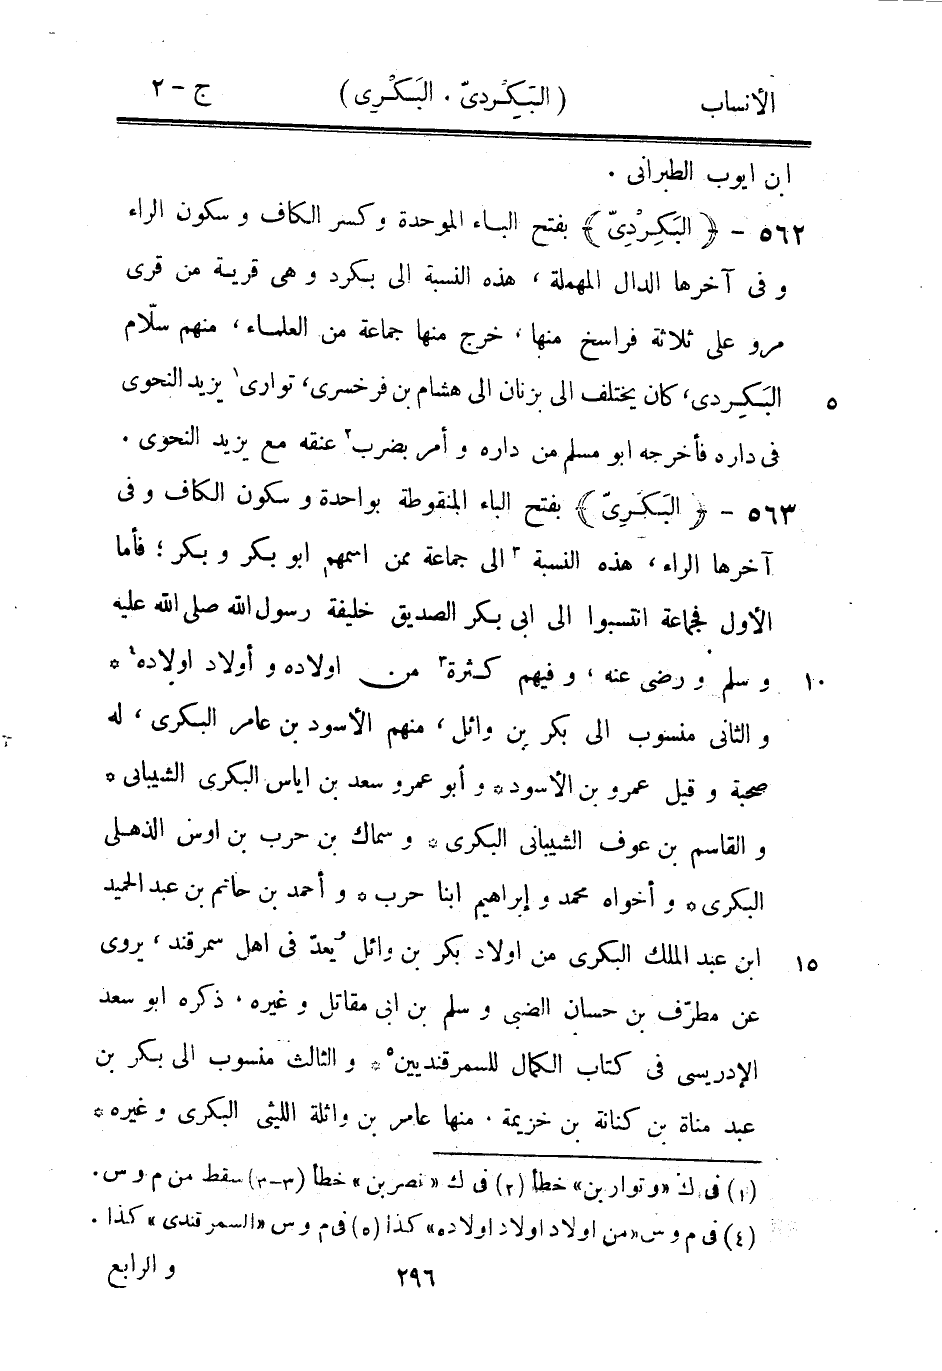 الأنساب (البَكِرْدىّ . البَكْرى) ج - ٢
ابن ايوب الطبرانى .
٥٦٢ - ﴿البَكِرْدِىّ﴾ بفتح الباء الموحدة وكسر الكاف و سكون الراء
و فى آخرها الدال المهملة ، هذه النسبة الى بكرد و هى قرية من قرى
مرو على ثلاثة فراسخ منها ، خرج منها جماعة من العلماء ، منهم سلّام
البَكِردى، كان يختلف الى بزنان الى هشام بن فرخسرى، توارى١ يزيد النحوى ٥
فى داره فأخرجه ابو مسلم من داره و أمر بضرب٢ عنقه مع يزيد النحوى .
٥٦٣ - ﴿البَكرِىّ﴾ بفتح الباء المنقوطة بواحدة و سكون الكاف و فى
آخرها الراء ، هذه النسبة ٣ الى جماعة ممن اسمهم ابو بكر و بكر ؛ فأما
الأول فجماعة انتسبوا الى ابى بكر الصديق خليفة رسول الله صلى الله عليه
و سلم و رضى عنه ، و فيهم كثرة٣ من اولاده و أولاد اولاده٤ * ١٠
و الثانى منسوب الى بكر بن وائل ، منهم الأسود بن عامر البكرى ، له
صحبة و قيل عمرو بن الأسود * و أبو عمرو سعد بن اياس البكرى الشيبانى *
و القاسم بن عوف الشيبانى البكرى * و سماك بن حرب بن اوس الذهلى
البكرى * و أخواه محمد و إبراهيم ابنا حرب * و أحمد بن حاتم بن عبد الحميد
ابن عبد الملك البكرى من اولاد بكر بن وائل يُعدّ فى اهل سمرقند ، يروى ١٥
عن مطرّف بن حسان الضبى و سلم بن ابى مقاتل و غيره . ذكره ابو سعد
الإدريسى فى كتاب الكمال للسمرقنديين٥ * و الثالث منسوب الى بكر بن
عبد مناة بن كنانة بن خزيمة . منها عامر بن واثلة الليثى البكرى و غيره *
(١) فى ك «و توار بن» خطأ (٢) فى ك «نصر بن» خطأ (٣-٣) سقط من م و س .
(٤) فى م و س «من اولاد اولاد اولاده» كذا (٥) فى م و س «السمرقندى» كذا .
٢٩٦ و الرابع